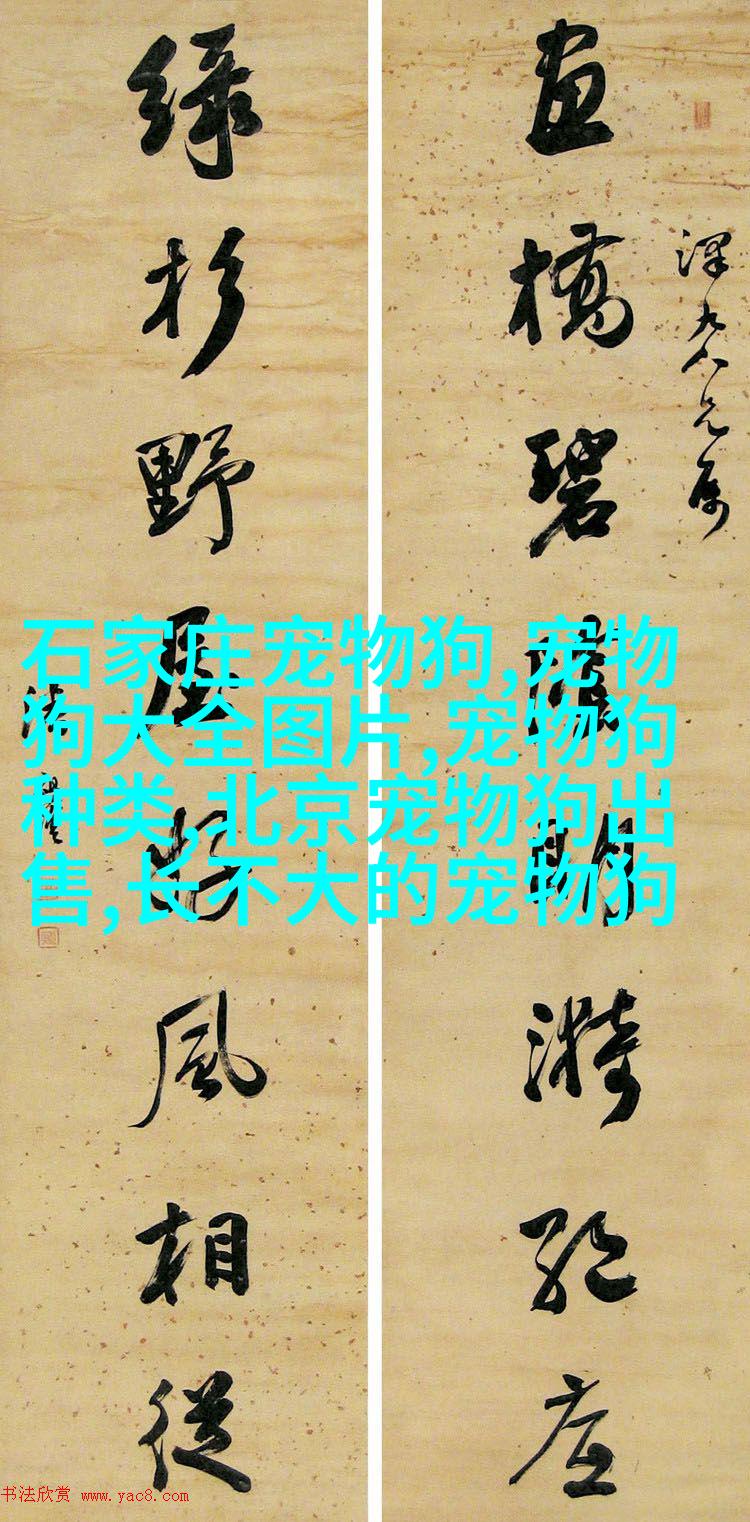 畫橋碧陰明漪絕底
綠杉野屋好風相從
石家庄宠物狗,宠物
狗大全图片,宠物狗
种类,北京宠物狗出
售,长不大的宠物狗
书法欣赏 www.yac8.com